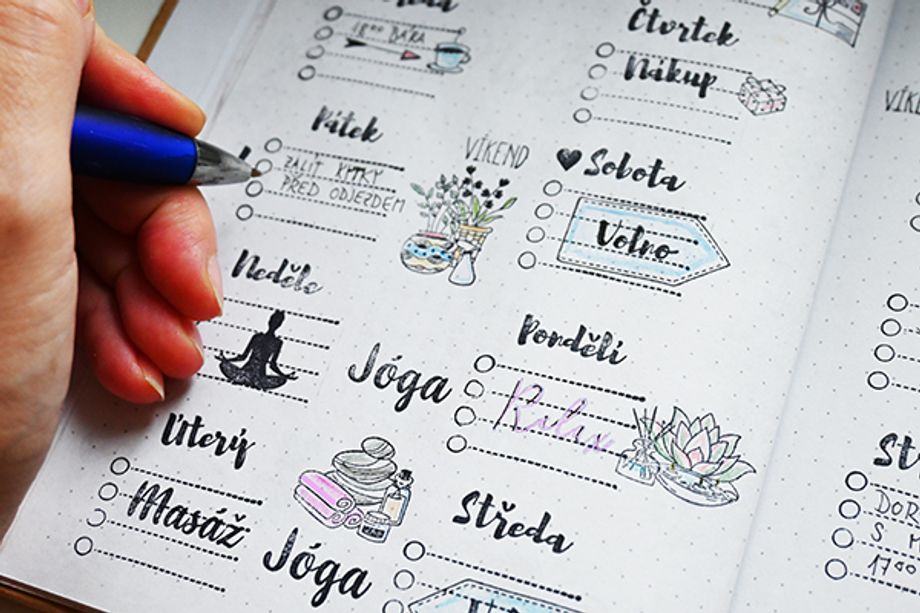 18:00 BÁRA
Čtvrtek
Nákup
Pátek
ZALÍT KYTKY
PŘED ODJEZDEM
VÍKEND
Sobota
Volno
Neděle
Jóga
Pondělí
Relax
Úterý
Masáž
Jóga
Středa